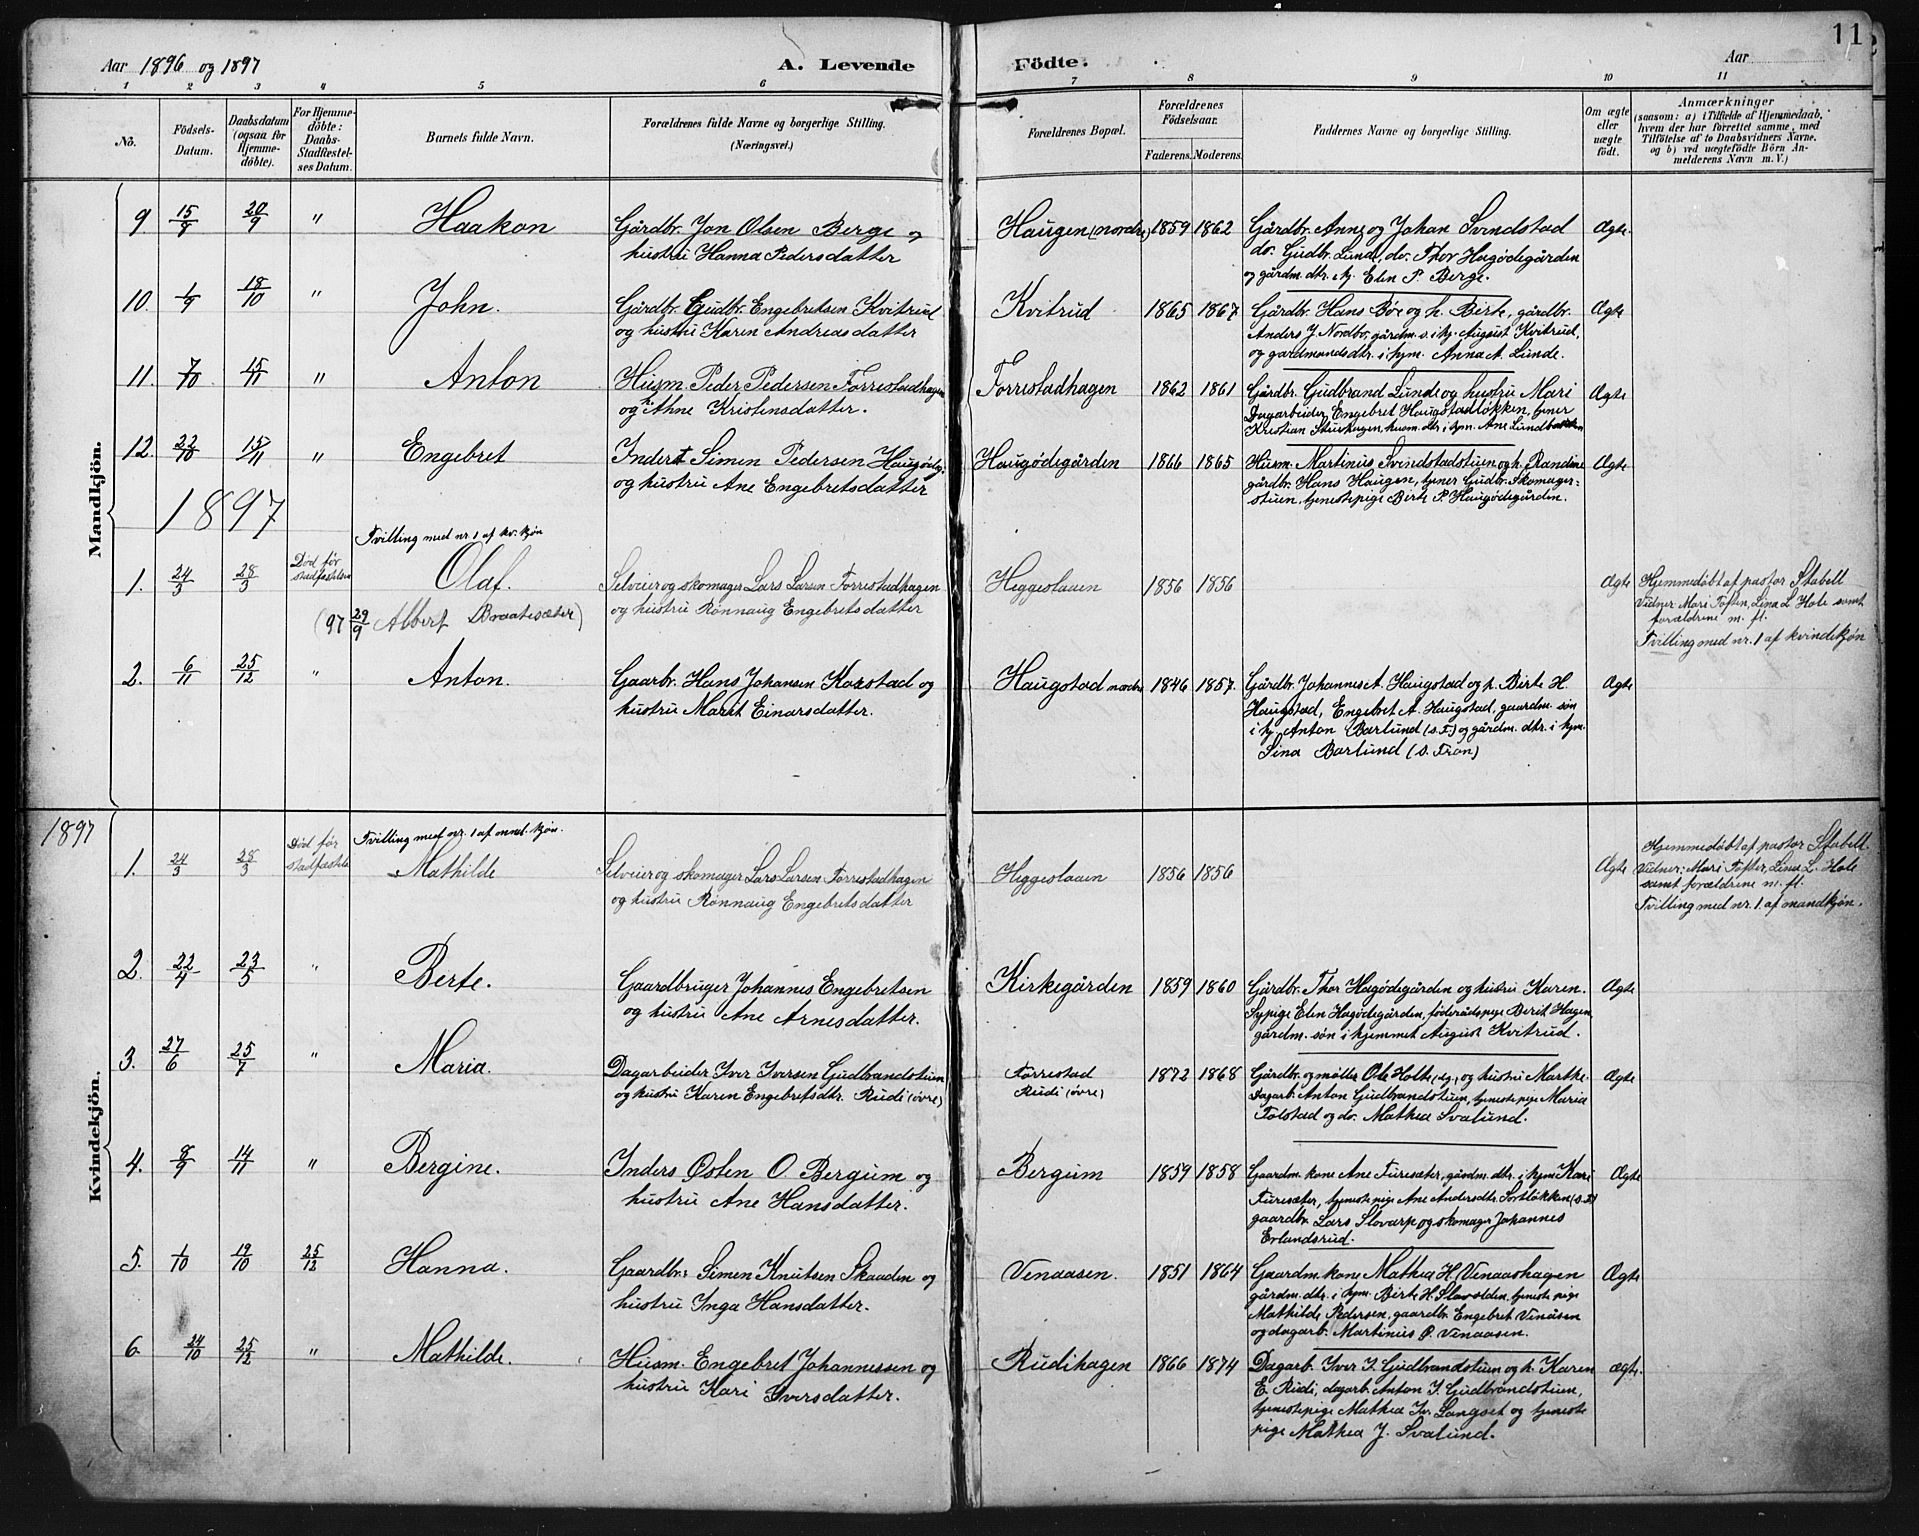 11
Aar 1896 og 1897
A. Levende
Födte.
Aar
1 2 3 4 5 6 7 8 9 10 11
No.
Födsels-Datum.
Daabsdatum (ogsaa for Hjemme-döbte).
For Hjemme-döbte: Daabs-Stadfæstel-ses Datum.
Barnets fulde Navn.
Forældrenes fulde Navne og borgerlige Stilling. (Næringsvei.)
Forældrenes Bopæl.
Forældrenes Födselsaar.
Faderens. Moderens.
Faddernes Navne og borgerlige Stilling.
Om ægte eller uægte födt.
Anmærkninger
(saasom: a) i Tilfælde af Hjemmedaab, hvem der har forrettet samme, med Tilföielse af to Daabsvidners Navne. og b) ved uægtefödte Börn An-melderens Navn m. V.)
Mandkjön.
9 15/8 20/9 " Haakon Gårdbr. Jon Olsen Berge og Haugen (nordre) 1859 1862 Gårdbr. Anne og Johan Svindstad Ægte.
hustru Hanna Pedersdatter do. Gudbr. Lunde, do. Thor Hagödegården
og gårdm. dtr. i hj. Elen P. Berge.
10. 1/9 18/10 " John. Gårdbr. Gudbr. Engebretsen Kvitrud Kvitrud 1865 1867 Gårdbr. Hans Böe og h. Birte, gårdbr. Ægte
og hustru Karen Andreasdatter Anders J. Nordbr, gårdm. s. i hj. August Kvitrud,
og gardmandsdtr. i hjm. Anna A. Lunde.
11. 7/10 15/11 " Anton Husm. Peder Pedersen Forrestadhagen Forrestadhagen 1862 1861 Gårdbr. Gudbrand Lunde og hustru Mari Ægte
og h. Athne Kristensdatter. Dagarbeider Engebret Haugstadløkken, tjener
Kristian Struxhagen, husm. dtr. i hjm. Ane Lundbakken
12. 22/10 15/11 " Engebret Inderst Simen Pedersen Haugödeg. Haugödegården 1866 1865 Husm. Martinus Svindstadstuen og h. Randine Ægte
og hustru Ane Engebretsdatter gårdbr. Hans Haugen, tjener Gudbr. Skomager-
stuen, tjenestepige Birte P. Haugödegården.
1897
Tvilling med nr. 1 af kv. kjön
1. 24/3 28/3 Död før stadfæstelsen Olaf. Selveier og skomager Lars Larsen Forrestadhagen Heggeslaaen 1856 1856 Ægte Hjemmedöbt af pastor Stabell
og hustru Rønnaug Engebretsdatter Vidner Mari Toften, Lina L. Hole samt
forældrene m. fl.
(97 29/9 Albert Braatesæter) Tvilling med nr. 1 af kvindekjön
2. 6/11 25/12 " Anton. Gaarbr. Hans Johansen Korstad og Haugstad nordre 1846 1857. Gårdbr. Johannes A. Haugstad og h. Birte H. Ægte
hustru Marit Einarsdatter. Haugstad, Engebret A. Haugstad, gaardm. sön
i hj. Anton Barlund (s. F.) og gårdm. dtr. i hjm.
Sina Barlund (s. Fron)
Kvindekjön.
1897
Tvilling med nr. 1 af mand. kjön.
1. 24/3 28/3 Död før stadfæstels. Mathilde Selveier og skomager Lars Larsen Forrestadhagen Heggeslaaen 1856 1856 Ægte Hjemmedöbt af pastor Stabell.
og hustru Rønnaug Engebretsdatter Vidner: Mari Toften, Lina L. Hole
samt forældrene m. fl.
Tvilling med nr. 1. af mandkjön.
2. 22/4 23/5 " Berte. Gaardbruger Johannes Engebretsen Kirkegården 1859 1860 Gårdbr. Thor Hagödegården og hustru Karen. Ægte
og hustru Ane Arnesdatter. Sypige Elen Hagödegården, föderådspige Berit Hagen
gårdm. sön i hjemmet August Kvitrud.
3. 27/6 25/7 " Maria. Dagarbeider Iver Iversen Gudbrandstuen Forrestad 1872 1868 Gårdbr. og møller Ole Holte og hustru Marthe. Ægte
og hustru Karen Engebretsdtr. Rudi (övre) Rudi (övre) Dagarb. Anton Gudbrandstuen, tjenestepige Maria
Tolstad og do. Mathea Svalund.
4. 8/9 14/11 " Bergine. Inders. Østen O. Bergum og Bergum 1859 1858 Gaardm. kone Ane Furesæter, gårdm. dtr. i hjm Kari Ægte
hustru Ane Hansdatter. Furesæter, tjenestepige Ane Andersdtr. Sortløkken (s. F.)
gaardbr. Lars Slovarp og skomager Johannes
Erlandsrud.
5. 1/10 19/10 25/12 Hanna. Gaardbr. Simen Knutsen Skaaden og Venaasen. 1851 1864 Gaardm. kone Mathea H. Venaashagen Ægte
hustru Inga Hansdatter. gårdm. dtr. i hjm. Birte H. Slavolden, tjenestepige
Mathilde Pedersen, gaardbr. Engebret Venåsen
og dagarb. Martinus P. Venaasen.
6. 24/10 25/12 " Mathilde. Husm. Engebret Johannessen og Rudihagen 1866 1874 Dagarb. Iver I. Gudbrandstuen og h. Karen ægte.
hustru Kari Iversdatter. E. Rudi, dagarb. Anton I. Gudbrandstuen,
tjenestepige Mathea Iv. Langset og tjeneste
pige Mathea J. Svalund.